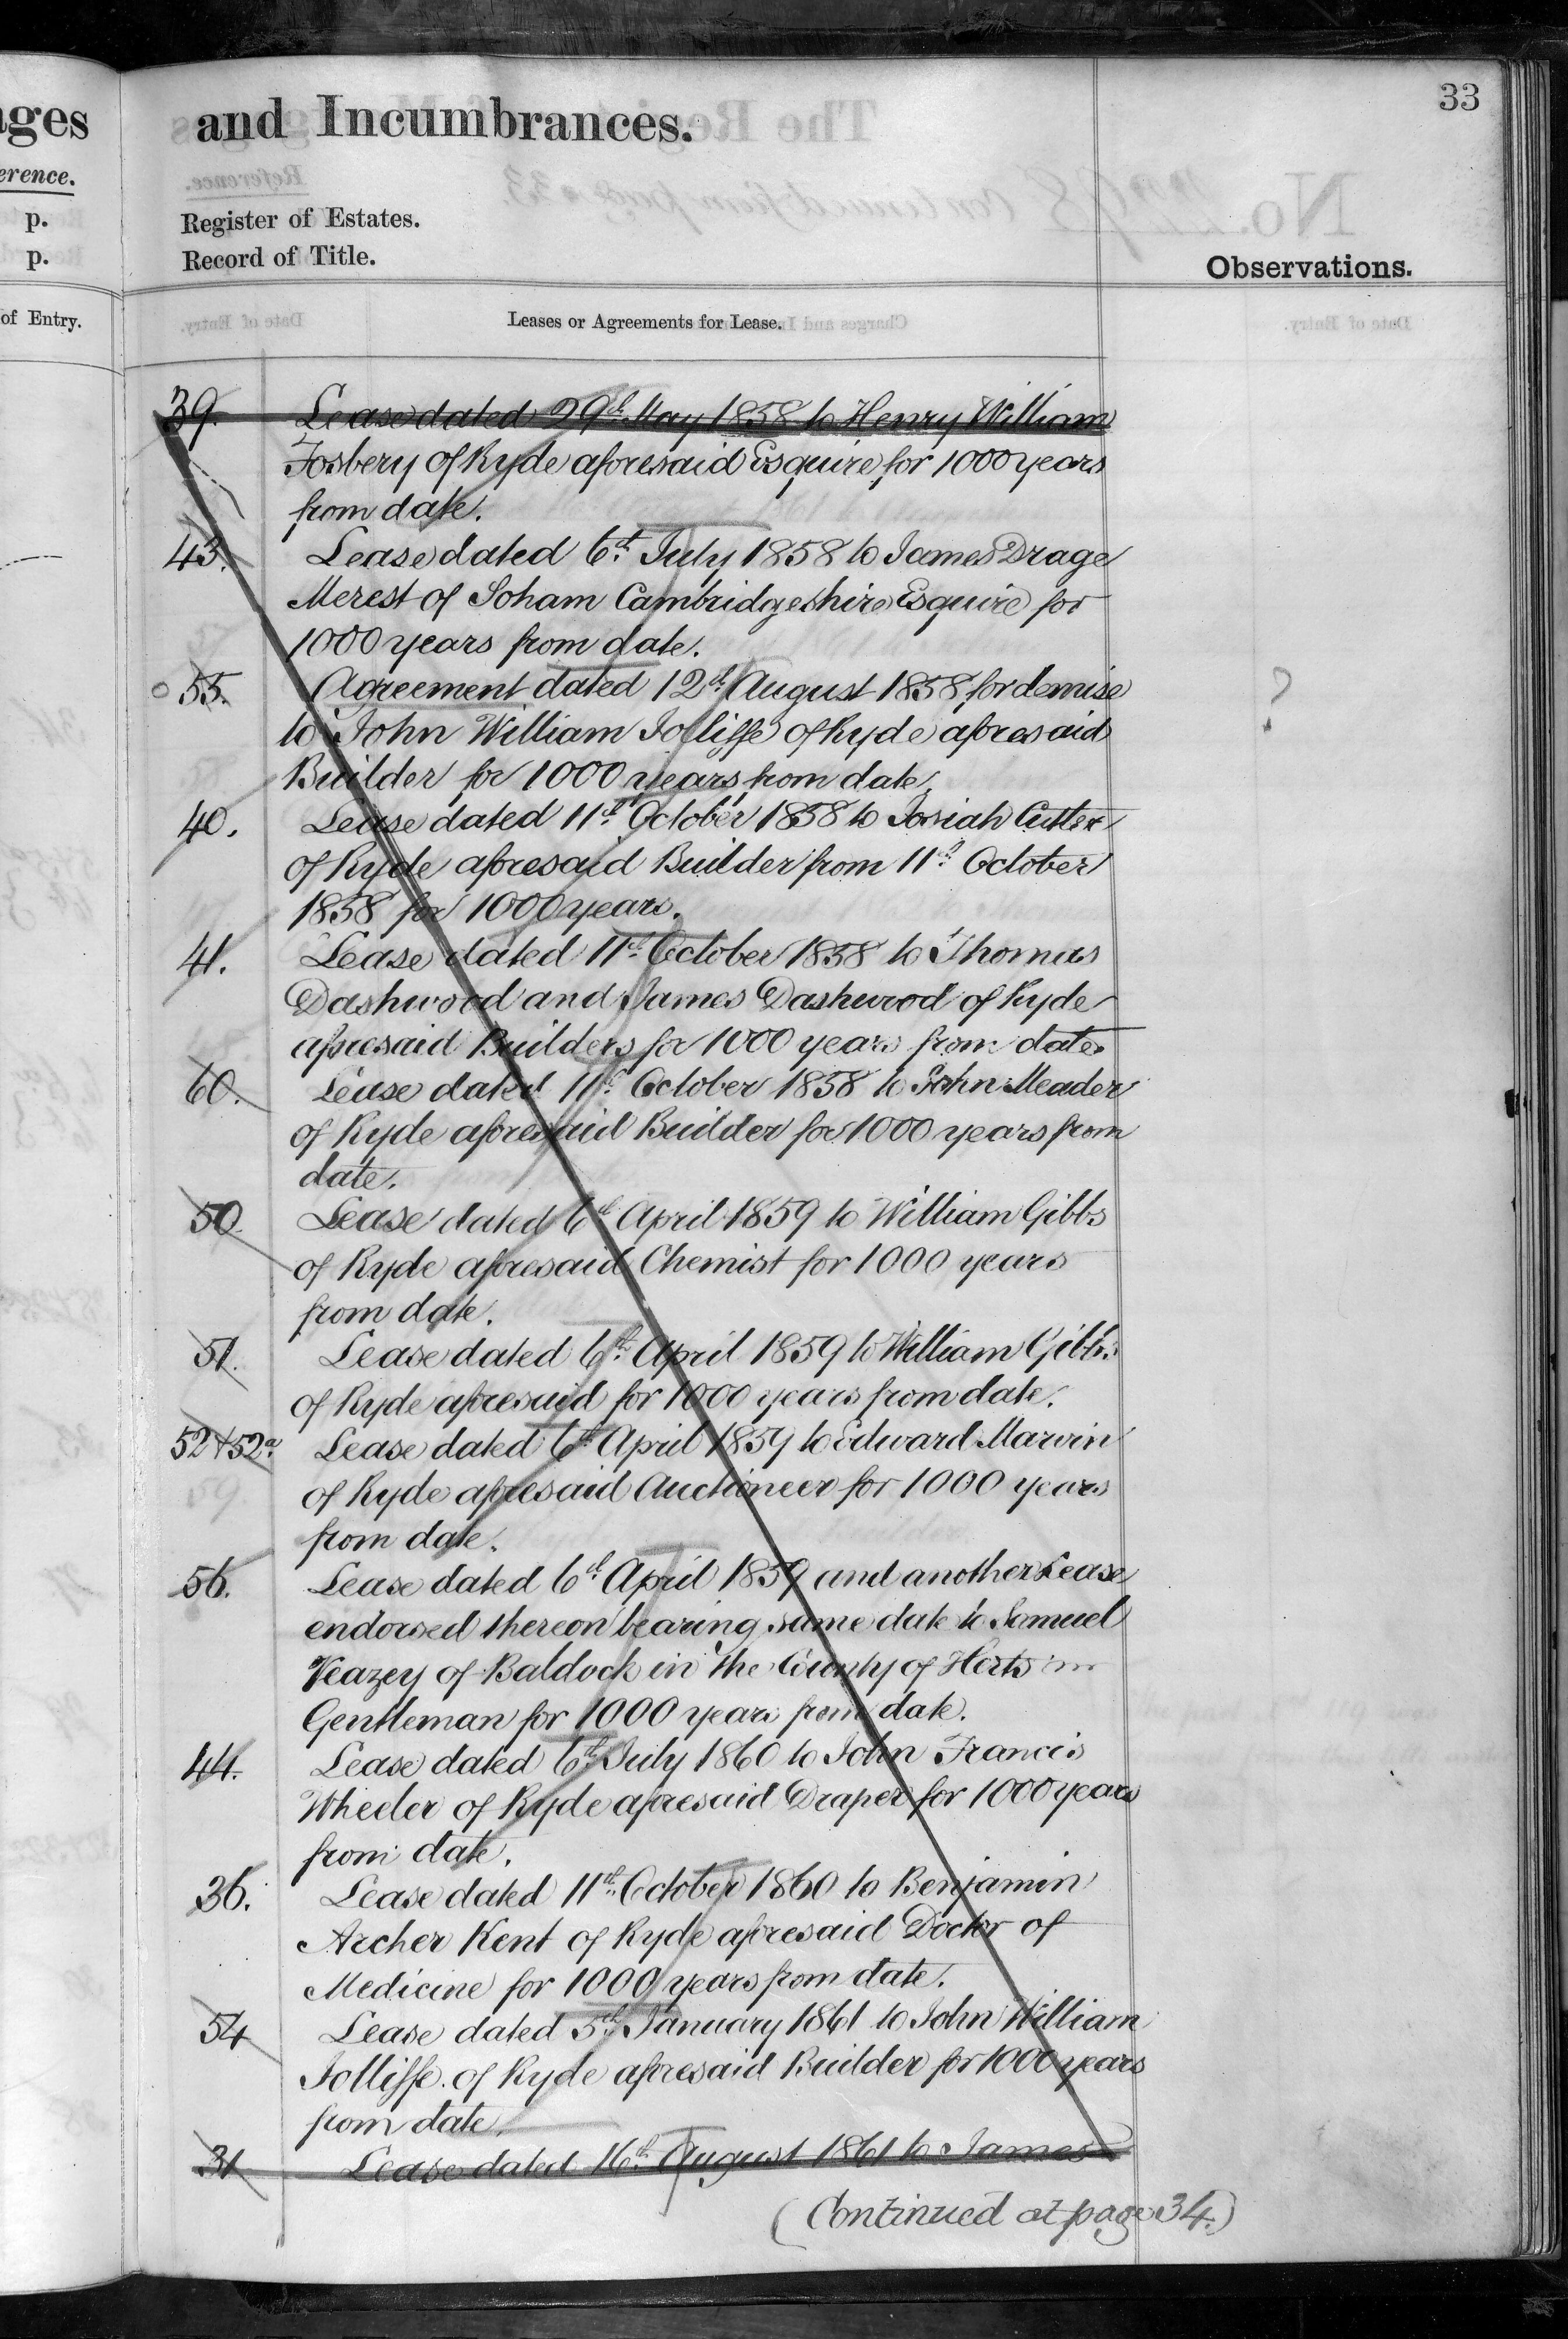 33
ages
and Incumbrances.
erence.
p.
Register of Estates.
p.
Record of Title.
Observations.
of Entry.
Leases or Agreements for Lease.
39. Lease dated 29th May 1858 to Henry William
Fosbery of Ryde aforesaid Esquire for 1000 years
from date.
43. Lease dated 6th July 1858 to James Drage
Merest of Soham Cambridgeshire Esquire for
1000 years from date.
55. Agreement dated 12th August 1858 for demise
?
to John William Jolliffe of Ryde aforesaid
Builder for 1000 years from date.
40. Lease dated 11th October 1858 to Josiah Cutler
of Ryde aforesaid Builder from 11th October
1858 for 1000 years.
41. Lease dated 11th October 1858 to Thomas
Dashwood and James Dashwood of Ryde
aforesaid Builders for 1000 years from date.
60. Lease dated 11th October 1858 to John Meader
of Ryde aforesaid Builder for 1000 years from
date.
50. Lease dated 6th April 1859 to William Gibbs
of Ryde aforesaid Chemist for 1000 years
from date.
51. Lease dated 6th April 1859 to William Gibbs
of Ryde aforesaid for 1000 years from date.
52 & 52a Lease dated 6th April 1859 to Edward Marvin
of Ryde aforesaid Auctioneer for 1000 years
from date.
56. Lease dated 6th April 1859 and another Lease
endorsed thereon bearing same date to Samuel
Veazey of Baldock in the County of Herts
Gentleman for 1000 years from date.
44. Lease dated 6th July 1860 to John Francis
Wheeler of Ryde aforesaid Draper for 1000 years
from date.
36. Lease dated 11th October 1860 to Benjamin
Archer Kent of Ryde aforesaid Doctor of
Medicine for 1000 years from date.
54 Lease dated 5th January 1861 to John William
Jolliffe of Ryde aforesaid Builder for 1000 years
from date.
31 Lease dated 16th August 1861 to James
(Continued at page 34.)